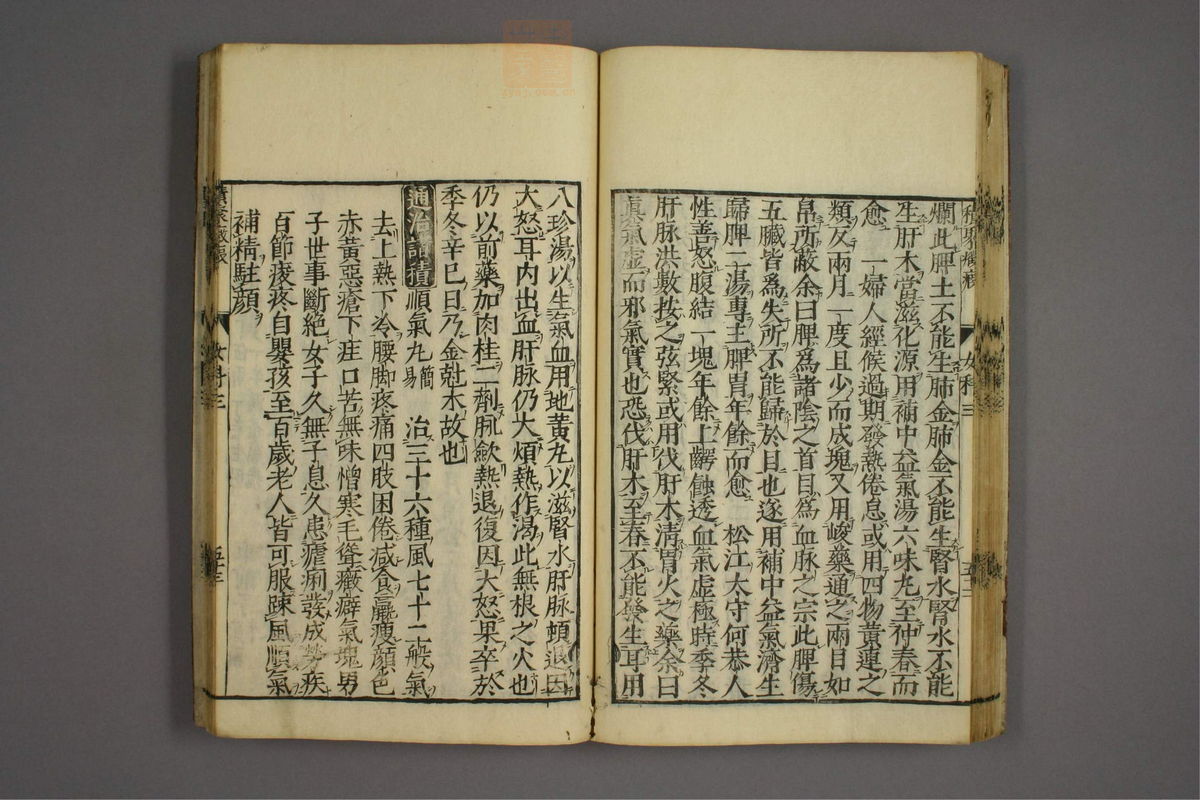 爛此脾土不能生肺金肺金不能生腎水腎水不能
生肝木當滋化源用補中益氣湯六味丸至仲春而
愈　一婦人經候過期發熱倦怠或用四物黃連之
類反兩月一度且少而成塊又用峻藥通之兩目如
帛所蔽余曰脾爲諸陰之首目爲血脉之宗此脾傷
五臟皆爲失所不能歸於目也遂用補中益氣濟生
歸脾二湯專主脾胃年餘而愈　松江太守何恭人
性善怒腹結一塊年餘上齶蝕透血氣虛極時季冬
肝脉洪數按之弦緊或用伐肝木清胃火之藥余曰
眞氣虛而邪氣實也恐伐肝木至春不能發生耳用
女科三
八珍湯以生氣血用地黃丸以滋腎水肝脉頓退因
大怒耳內出血肝脉仍大煩熱作渴此無根之火也
仍以前藥加肉桂二劑脈斂熱退復因大怒果卒於
季冬辛巳日乃金尅木故也
通治諸積順氣丸簡易　治三十六種風七十二般氣
去上熱下冷腰脚疼痛四肢困倦减食羸瘦顏色
赤黃惡瘡下疰口苦無味憎寒毛聳癥癖氣塊男
子世事斷絕女子久無子息久患瘧痢發成勞疾
百節痠疼自嬰孩至百歲老人皆可服踈風順氣
補精駐顏
女科三